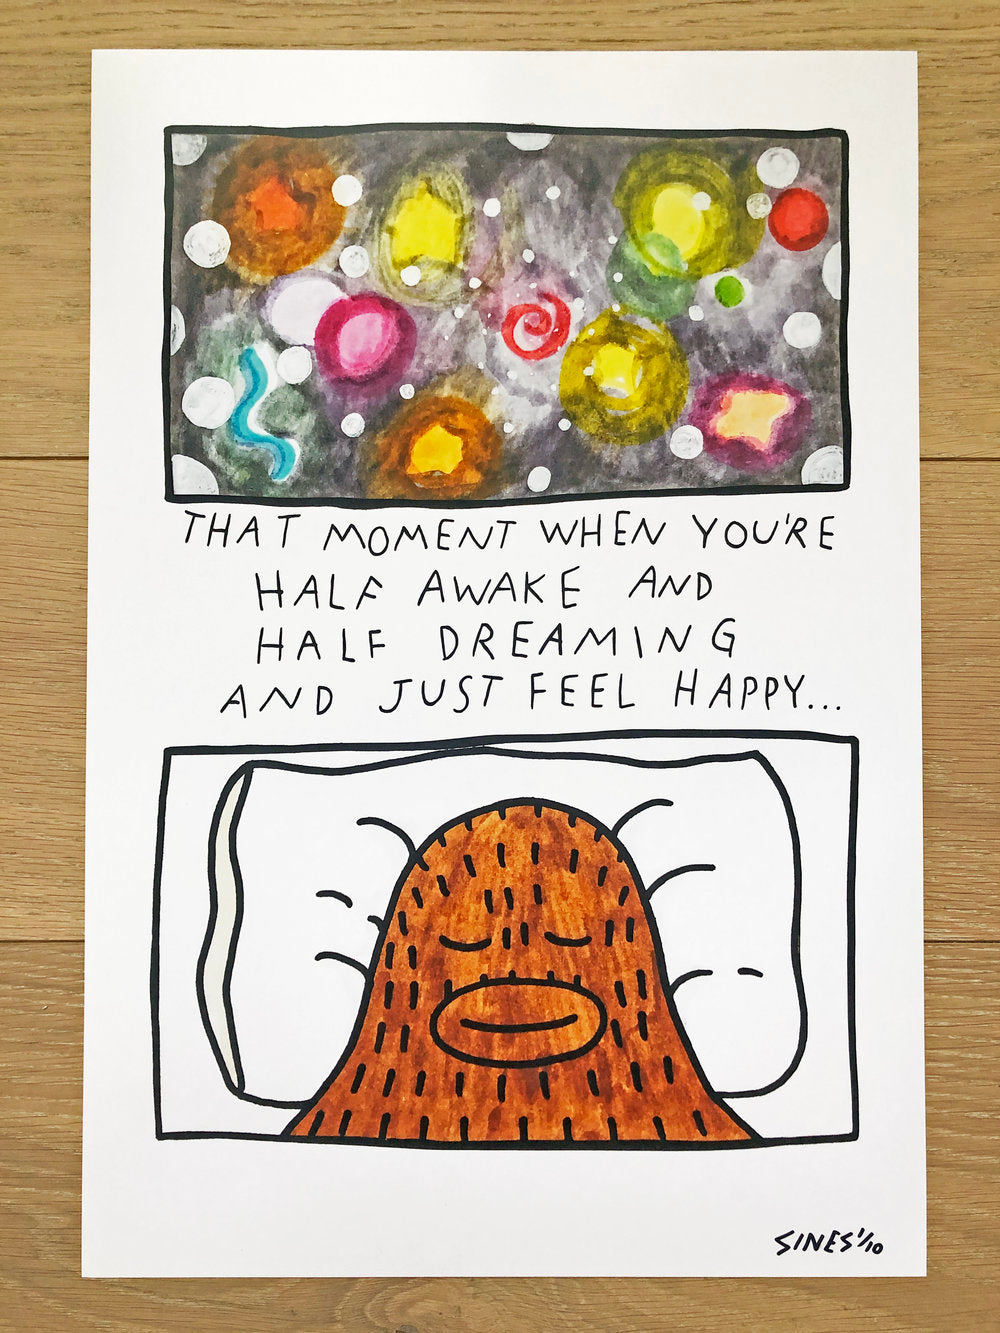 THAT MOMENT WHEN YOU'RE
HALF AWAKE AND
HALF DREAMING
AND JUST FEEL HAPPY...
SINES 1/10